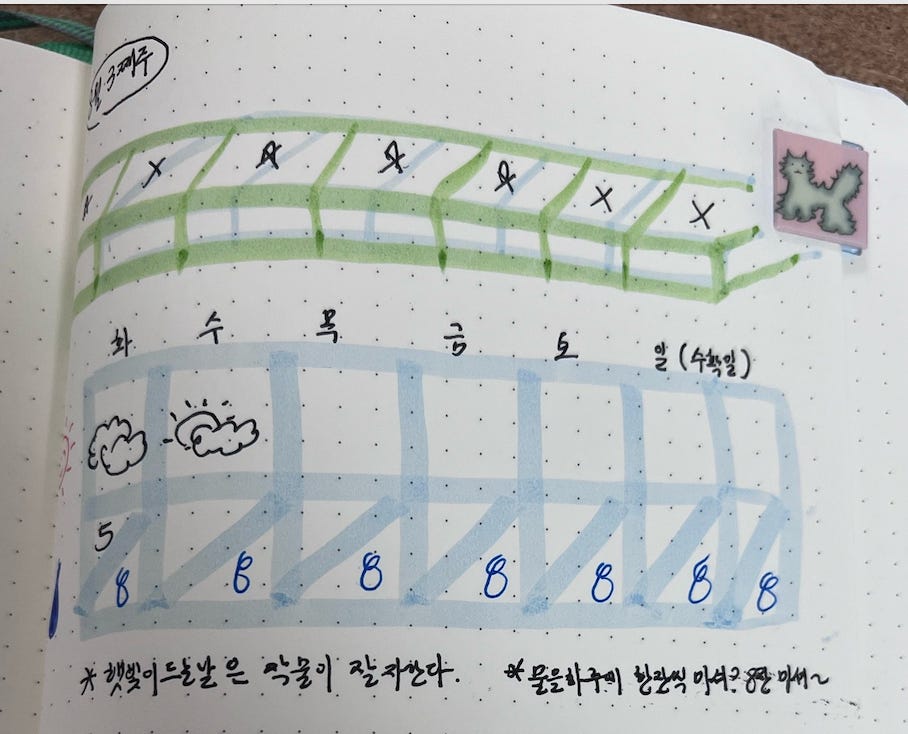 월 3째주
x x
x x
화 수 목 금 토 일 (수확일)
5
8 8 8 8 8 8 8
* 햇빛이드는날은 작물이 잘자란다.
* 물을하루에 한잔씩 마셔? 8잔 마셔~